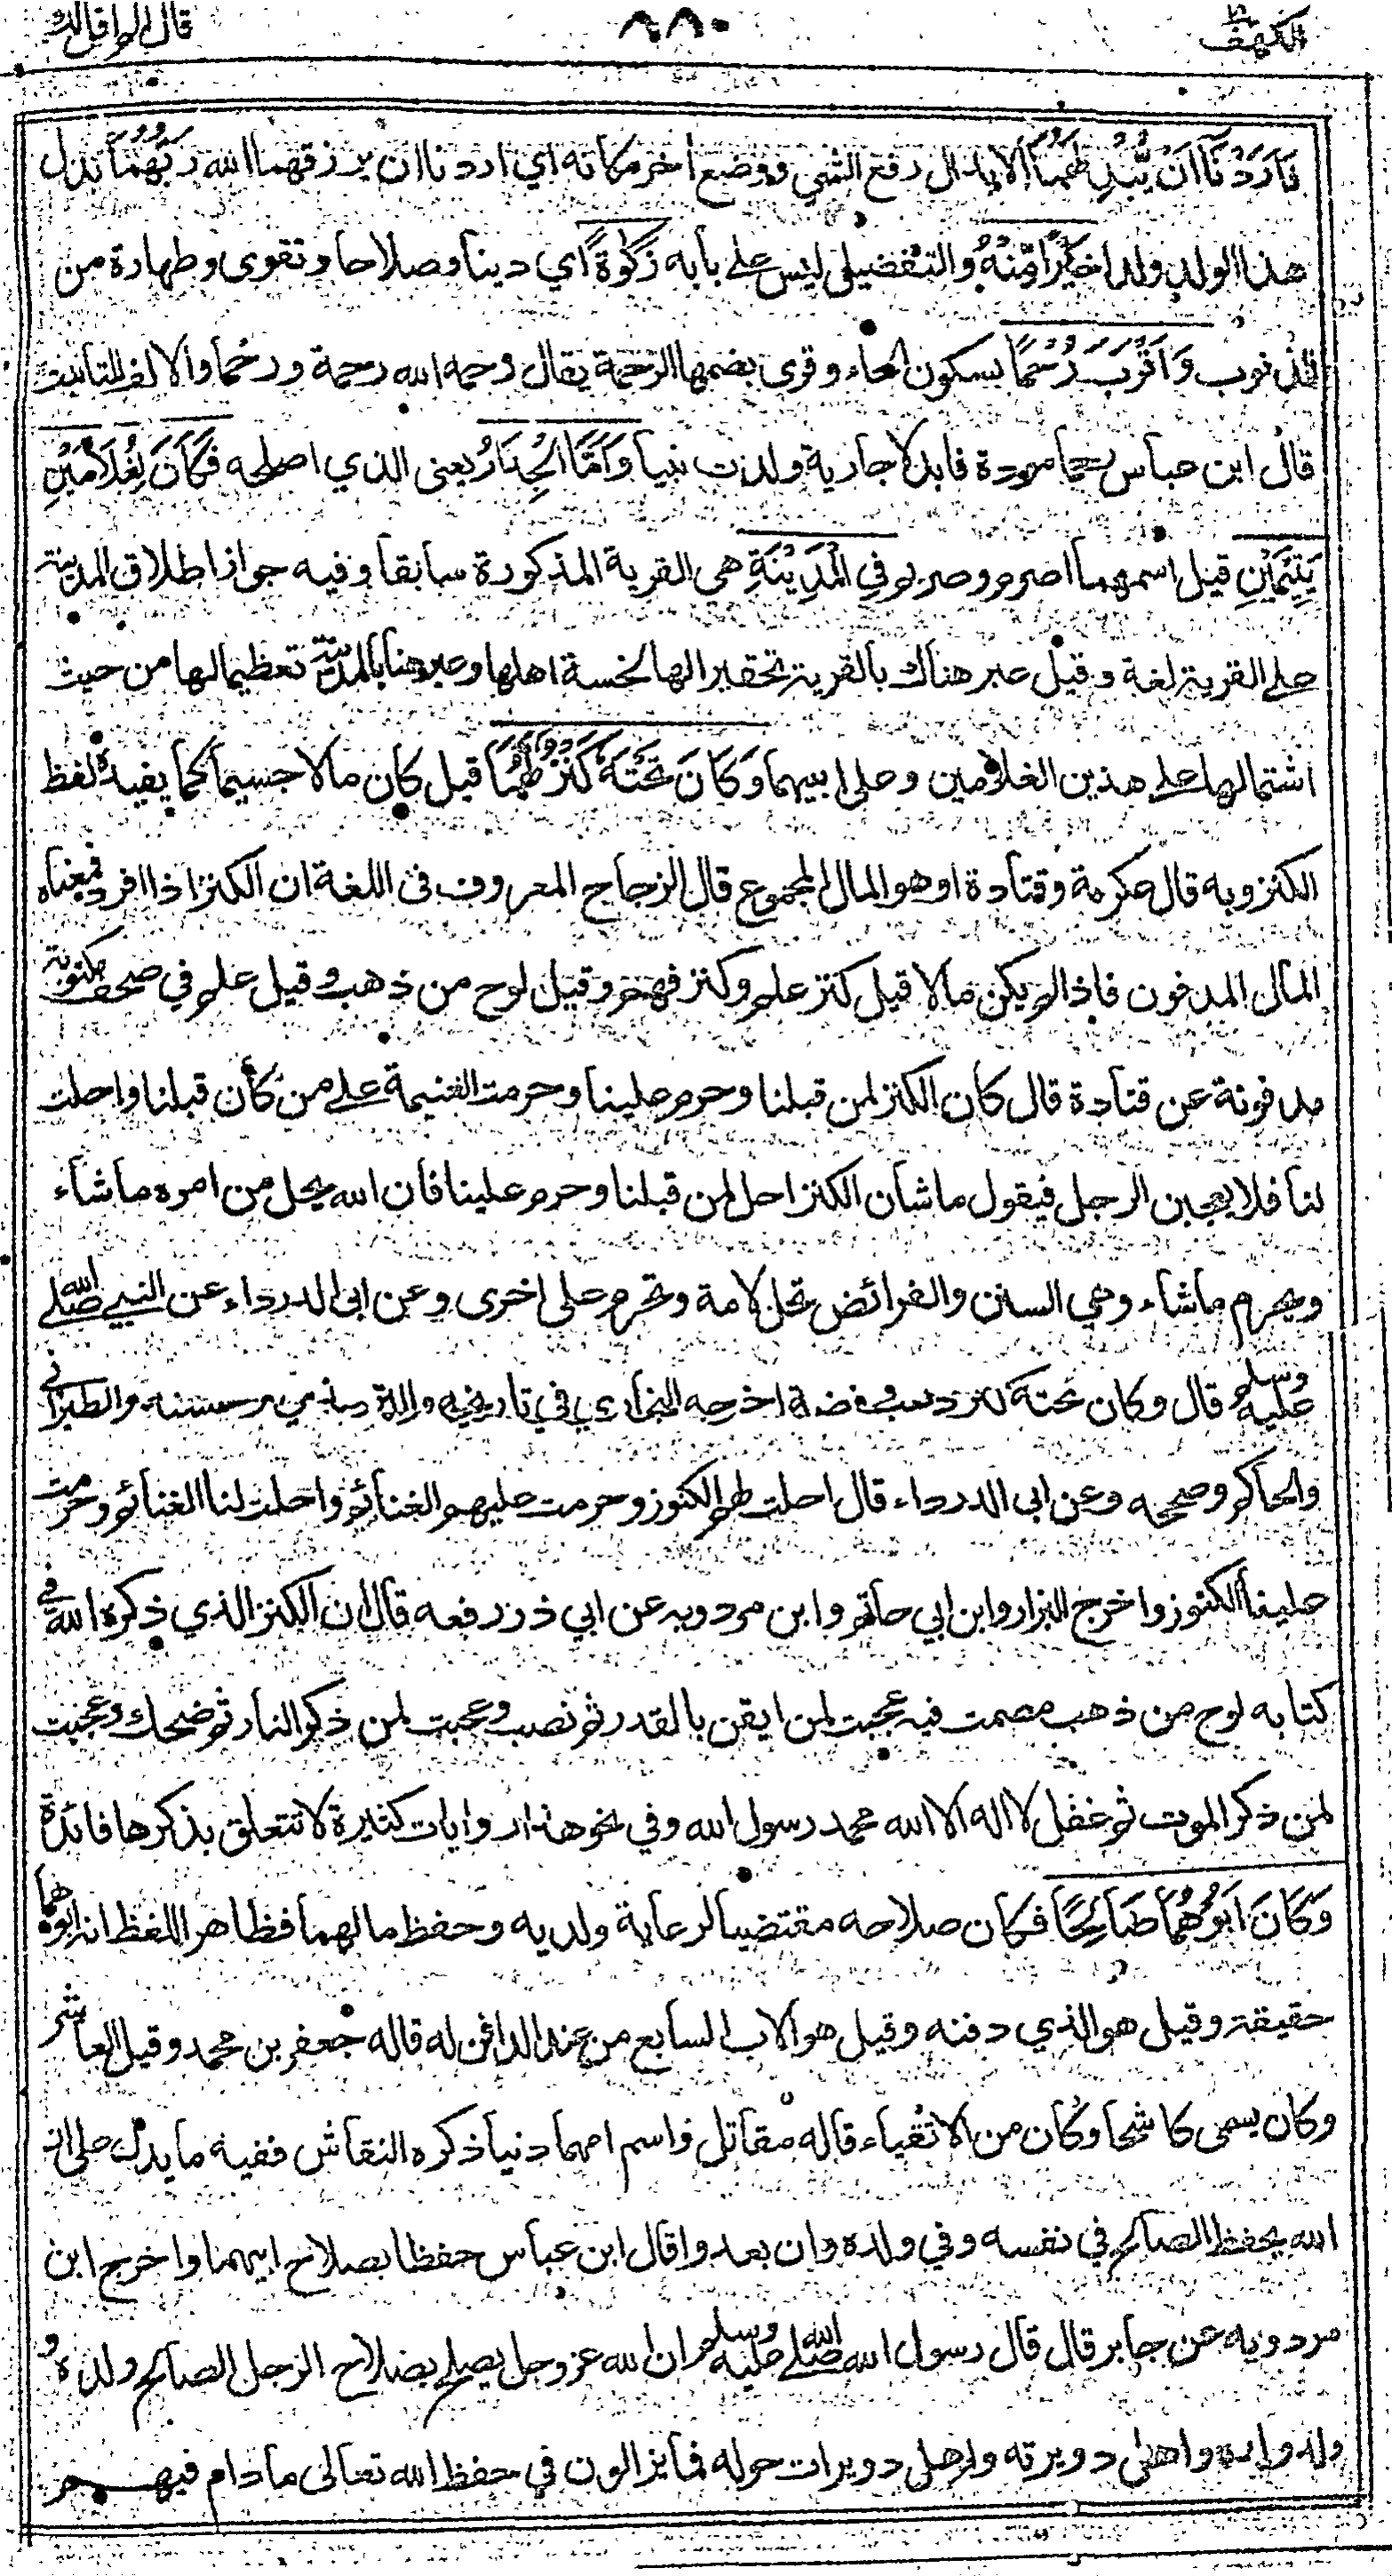 الكهف ١٨
٦٨٠
قال الم اقل لك
فَاَرَدْنَآ اَنْ يُّبْدِلَهُمَا الابدال رفع الشيء ووضع اخر مكانه اي اردنا ان يرزقهما الله رَبُّهُمَا بدل
هذا الولد ولدا خَيْرًا مِّنْهُ والتفضيل ليس على بابه زَكٰوةً اي دينا وصلاحا وتقوى وطهارة من
الذنوب وَاَقْرَبَ رُحْمًا بسكون الحاء وقرئ بضمها الرحمة يقال رحمه الله رحمة ورحما والالف للتانيث
قال ابن عباس رحما مودة فابدلا جارية ولدت نبيا وَاَمَّا الْجِدَارُ يعني الذي اصلحه فَكَانَ لِغُلَامَيْنِ
يَتِيْمَيْنِ قيل اسمهما اصرم وصريم فِي الْمَدِيْنَةِ هي القرية المذكورة سابقا وفيه جواز اطلاق المدينة
على القرية لغة وقيل عبر هناك بالقرية تحقيرا لها لخسة اهلها وعبر هنا بالمدينة تعظيما لها من حيث
اشتمالها على هذين الغلامين وعلى ابيهما وَكَانَ تَحْتَهٗ كَنْزٌ لَّهُمَا قيل كان مالا جسيما كما يفيده لفظ
الكنز وبه قال عكرمة وقتادة او هو المال المجموع قال الزجاج المعروف في اللغة ان الكنز اذا افرد فمعناه
المال المدفون فاذا لم يكن مالا قيل كنز علم وكنز فهم وقيل لوح من ذهب وقيل علم في صحف مكتوبة
مدفونة عن قتادة قال كان الكنز لمن قبلنا وحرم علينا وحرمت الغنيمة على من كان قبلنا واحلت
لنا فلا يعجبن الرجل فيقول ما شان الكنز احل لمن قبلنا وحرم علينا فان الله يحل من امره ما شاء
ويحرم ما شاء وهي السنن والفرائض تحل لامة وتحرم على اخرى وعن ابي الدرداء عن النبي صلى الله
عليه وسلم قال وكان تحته كنز ذهب وفضة اخرجه البخاري في تاريخه والترمذي وحسنه والطبراني
والحاكم وصححه وعن ابي الدرداء قال احلت لهم الكنوز وحرمت عليهم الغنائم واحلت لنا الغنائم وحرمت
علينا الكنوز واخرج البزار وابن ابي حاتم وابن مردويه عن ابي ذر رفعه قال ان الكنز الذي ذكره الله في
كتابه لوح من ذهب مصمت فيه عجبت لمن ايقن بالقدر ثم نصب وعجبت لمن ذكر النار ثم ضحك وعجبت
لمن ذكر الموت ثم غفل لا اله الا الله محمد رسول الله وفي نحو هذا روايات كثيرة لا تتعلق بذكرها فائدة
وَكَانَ اَبُوْهُمَا صَالِحًا فكان صلاحه مقتضيا لرعاية ولديه وحفظ مالهما فظاهر اللفظ انه ابوهما
حقيقة وقيل هو الذي دفنه وقيل هو الاب السابع من عند الدافن له قاله جعفر بن محمد وقيل العاشر
وكان يسمى كاشحا وكان من الاتقياء قاله مقاتل واسم امهما دنيا ذكره النقاش ففيه ما يدل على ان
الله يحفظ الصالح في نفسه وفي ولده وان بعدوا قال ابن عباس حفظا بصلاح ابيهما واخرج ابن
مردويه عن جابر قال قال رسول الله صلى الله عليه وسلم ان الله عز وجل يصلح بصلاح الرجل الصالح ولده و
ولد ولده واهل دويرته واهل دويرات حوله فما يزالون في حفظ الله تعالى ما دام فيهم